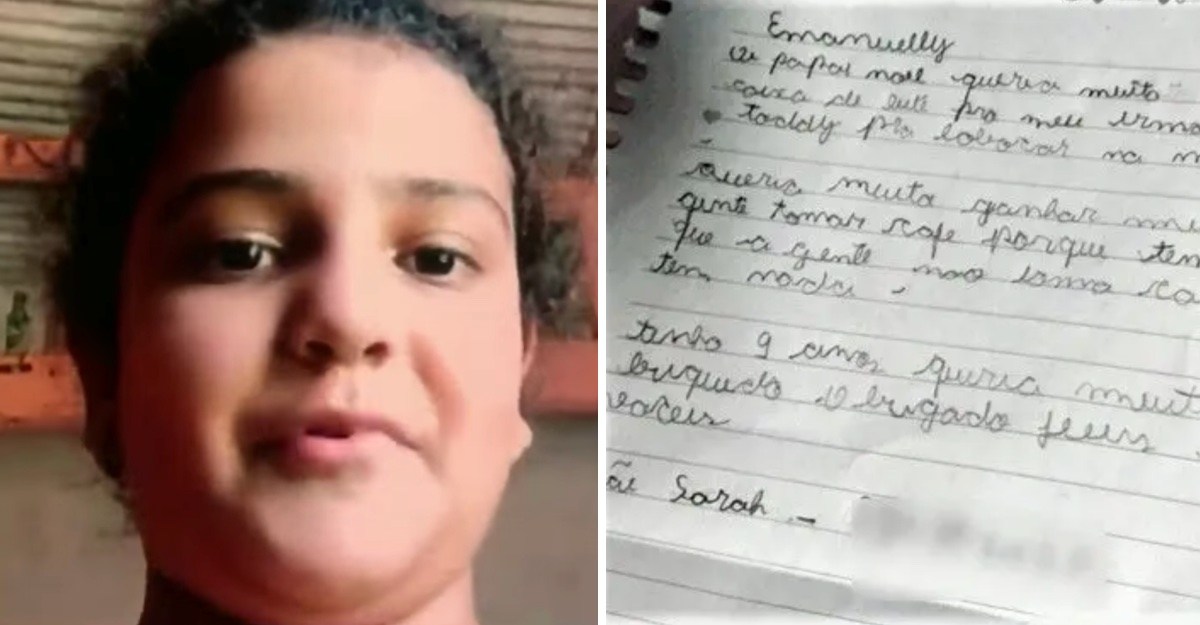 Emanuelly
oi papai noel queria muito
caixa de leite pro meu irma
toddy pra colocar na m
queria muito ganhar mu
gente tomar cafe porque tem
que a gente nao toma ca
tem nada.
tenho 9 anos queria muit
briquedo obrigado feliz
voceis
ãe Sarah -